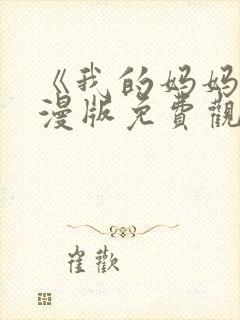 《我的妈妈
漫版免費觀
崔歡